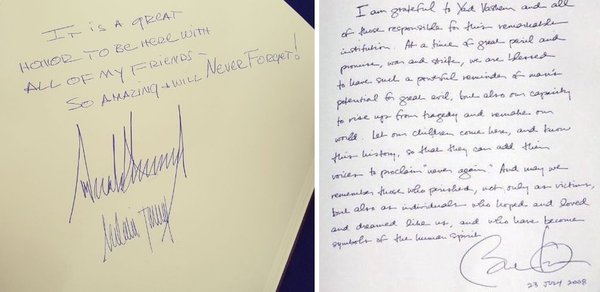 IT IS A GREAT
HONOR TO BE HERE WITH
ALL OF MY FRIENDS -
SO AMAZING + WILL NEVER FORGET!
Donald Trump
Melania Trump
I am grateful to Yad Vashem and all
of those responsible for this remarkable
institution. At a time of great peril and
promise, war and strife, we are blessed
to have such a powerful reminder of man's
potential for great evil, but also our capacity
to rise up from tragedy and remake our
world. Let our children come here, and know
this history, so that they can add their
voices to proclaim "never again." And may we
remember those who perished, not only as victims,
but also as individuals who hoped and loved
and dreamed like us, and who have become
symbols of the human spirit.
23 JULY 2008